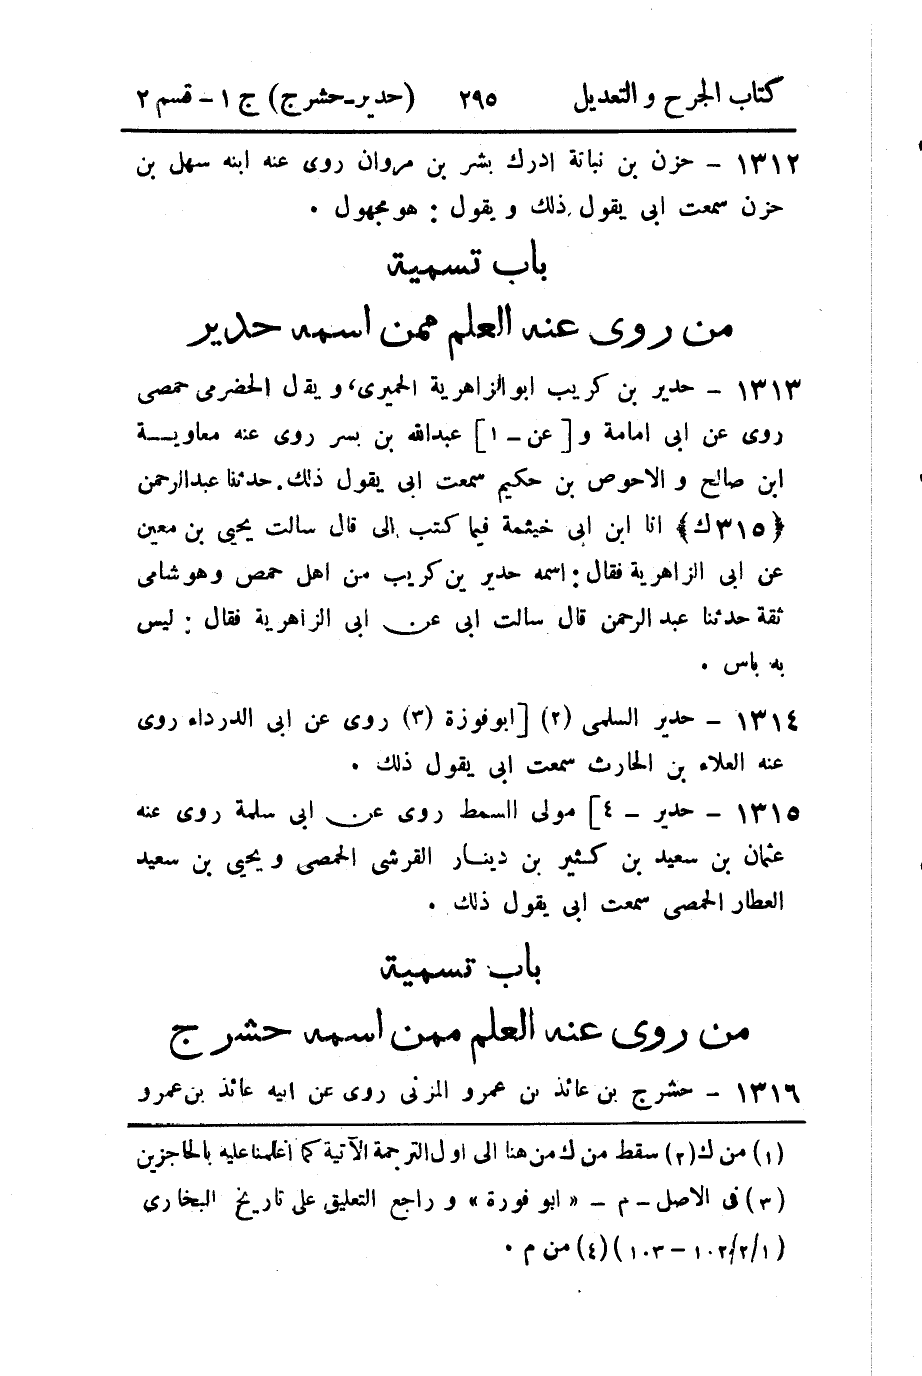 كتاب الجرح و التعديل ٢٩٥ (حدير-حشرج) ج ١ - قسم ٢
١٣١٢ - حزن بن نباتة ادرك بشر بن مروان روى عنه ابنه سهل بن
حزن سمعت ابى يقول ذلك و يقول : هو مجهول .
باب تسمية
من روى عنه العلم ممن اسمه حدير
١٣١٣ - حدير بن كريب ابو الزاهرية الحميرى، و يقل الحضرمى حمصى
روى عن ابى امامة و [عن - ١] عبدالله بن بسر روى عنه معاويـة
ابن صالح و الاحوص بن حكيم سمعت ابى يقول ذلك. حدثنا عبدالرحمن
﴿٣١٥ك﴾ انا ابن ابى خيثمة فيما كتب الى قال سالت يحيى بن معين
عن ابى الزاهرية فقال: اسمه حدير بن كريب من اهل حمص وهو شامى
ثقة حدثنا عبد الرحمن قال سالت ابى عن ابى الزاهرية فقال : ليس
به باس .
١٣١٤ - حدير السلمى (٢) [ابوفوزة (٣) روى عن ابى الدرداء روى
عنه العلاء بن الحارث سمعت ابى يقول ذلك .
١٣١٥ - حدير - ٤] مولى السمط روى عن ابى سلمة روى عنه
عثمان بن سعيد بن كثير بن دينـار القرشى الحمصى و يحيى بن سعيد
العطار الحمصى سمعت ابى يقول ذلك .
باب تسمية
من روى عنه العلم ممن اسمه حشرج
١٣١٦ - حشرج بن عائذ بن عمرو المزنى روى عن ابيه عائذ بن عمرو
(١) من ك (٢) سقط من ك من هنا الى اول الترجمة الآتية كما اعلمنا عليه بالحاجزين
(٣) فى الاصل - م - « ابو فورة » و راجع التعليق على تاريخ البخارى
(١/٢/١٠٢ - ١٠٣) (٤) من م .